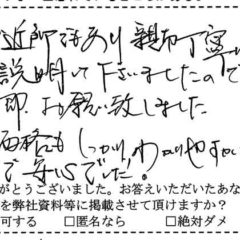 近所でもあり親切丁寧に
説明して下さいましたので
即、お願い致しました
価格もしっかり、わかりやすい
で安心でした!
がとうございました。お答えいただいたあな
を弊社資料等に掲載させて頂けますか?
可する □匿名なら □絶対ダメ